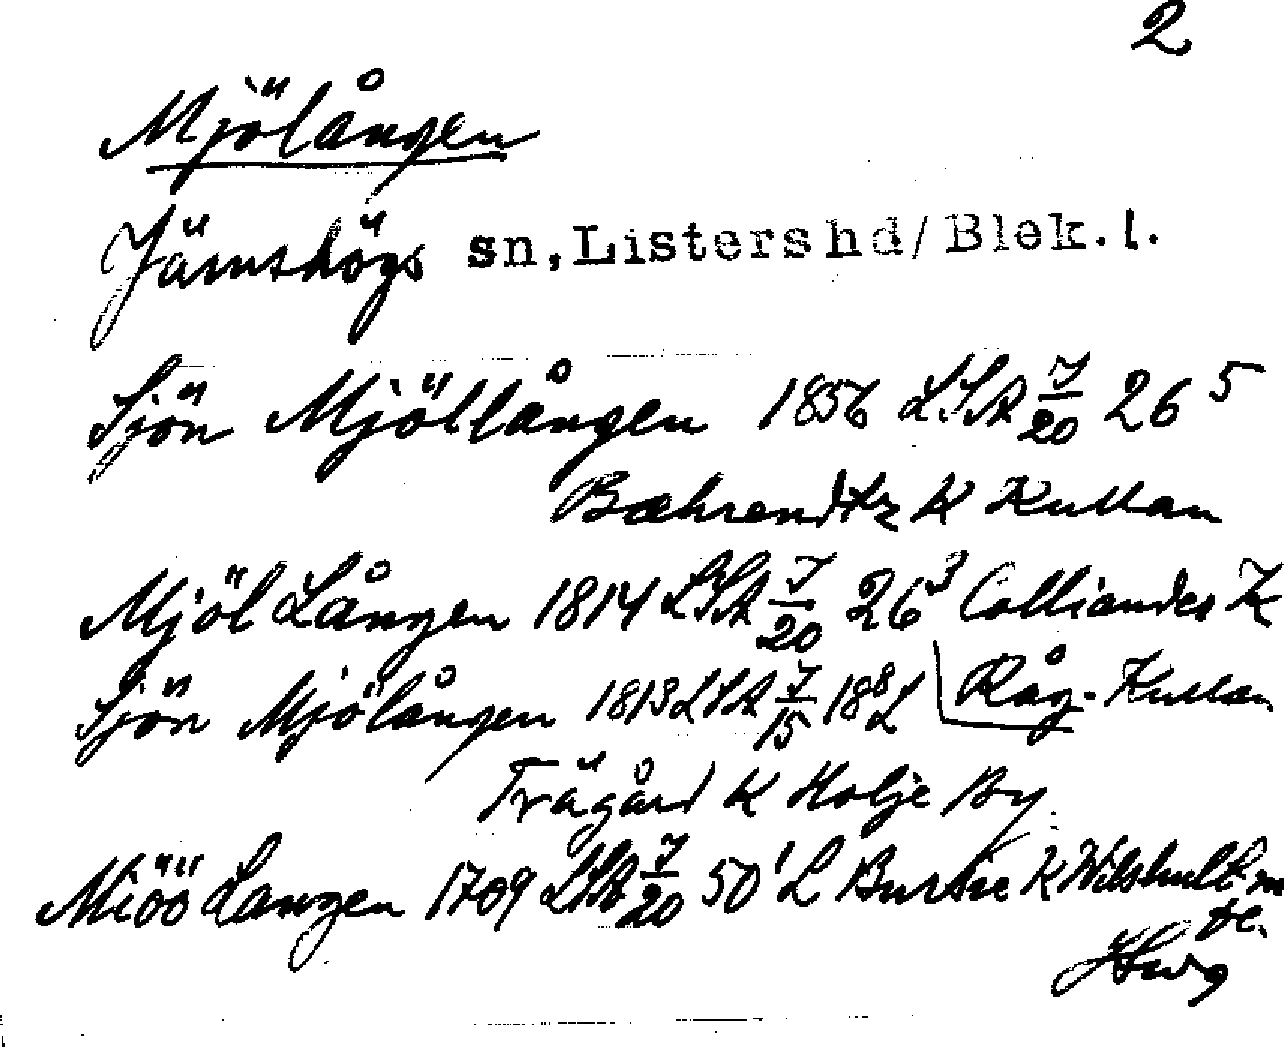 2
Mjölången
Jämshögs sn, Listers hd/Blek. l.
Sjön Mjöllången 1856 LSA J/20 26 5
Bæhrendtz K Kullan
Mjöl Lången 1814 LSA J/20 26 3 Colliander K
Råg-Kullan
Sjön Mjölången 1813 LSA J/15 18 8 L
Trägård K Holje By
Miöö Langen 1709 LSA J/20 50 1 L Burtie K Wilshult m
fl.